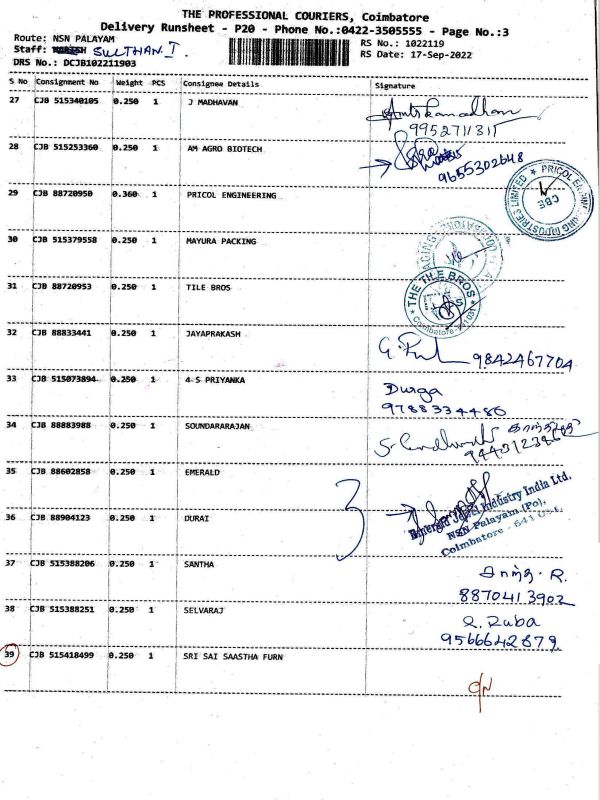 THE PROFESSIONAL COURIERS, Coimbatore
Delivery Runsheet - P20 - Phone No.:0422-3505555 - Page No.:3
Route: NSN PALAYAM
RS No.: 1022119
Staff: SULTHAN I.
RS Date: 17-Sep-2022
DRS No.: DCJB102211903
S No Consignment No Weight PCS Consignee Details Signature
27 CJB 515340105 0.250 1 J MADHAVAN
9952711311
28 CJB 515253360 0.250 1 AM AGRO BIOTECH
9655302648
29 CJB 88720950 0.360 1 PRICOL ENGINEERING
PRICOL ENGINEERING INDUSTRIES LIMITED
CBE
30 CJB 515379558 0.250 1 MAYURA PACKING
31 CJB 88720953 0.250 1 TILE BROS
THE TILE BROS
Coimbatore
32 CJB 88833441 0.250 1 JAYAPRAKASH
9842467704
33 CJB 515073894 0.250 1 4 S PRIYANKA
Durga
9788334480
34 CJB 88883988 0.250 1 SOUNDARARAJAN
35 CJB 88602858 0.250 1 EMERALD
3
Emerald Jewel Industry India Ltd.
NSN Palayam (Po),
Coimbatore - 641
36 CJB 88904123 0.250 1 DURAI
37 CJB 515388206 0.250 1 SANTHA
சாந்தா . R.
8870413902
38 CJB 515388251 0.250 1 SELVARAJ
R. Ruba
9566642879
39 CJB 515418499 0.250 1 SRI SAI SAASTHA FURN